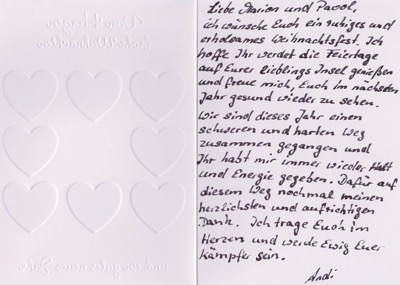 Liebe Marion und Pavol,
ich wünsche Euch ein ruhiges und
erholsames Weihnachtsfest. Ich
hoffe Ihr werdet die Feiertage
auf Eurer lieblings Insel genießen
und freue mich, Euch im nächsten
Jahr gesund wieder zu sehen.
Wir sind dieses Jahr einen
schweren und harten Weg
zusammen gegangen und
Ihr habt mir immer wieder Halt
und Energie gegeben. Dafür auf
diesem Weg nochmal meinen
herzlichsten und aufrichtigen
Dank. Ich trage Euch im
Herzen und werde Ewig Euer
Kämpfer sein.
Andi